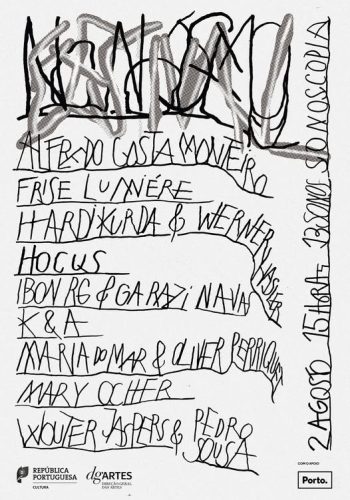 ALFREDO COSTA MONTEIRO
FRISE LUMIÉRE
HARDI KURDA & WERNER
HOCUS
IBON RG & GARAZI NAVAS
K & A
MARIA DO MAR & OLIVER PERRIQUET
MARY OCHER
WOUTER JASPERS & PEDRO SOUSA
2 AGOSTO 15 HORAS SONOSCOPIA
REPÚBLICA PORTUGUESA
CULTURA
dgARTES
DIREÇÃO-GERAL DAS ARTES
COM O APOIO
Porto.